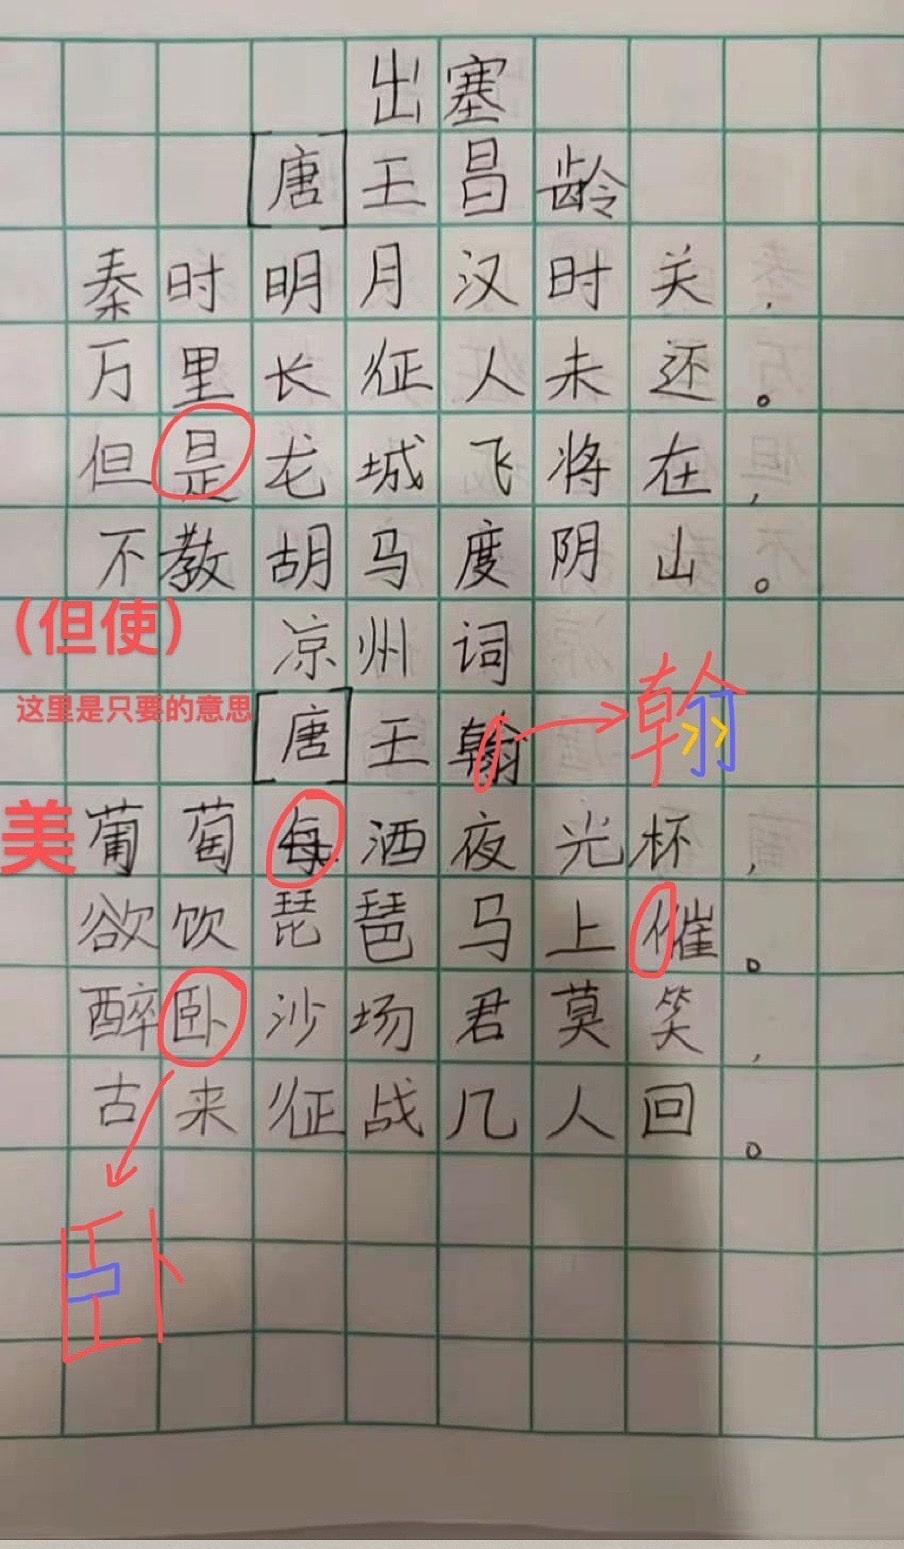 出塞
[唐]王昌龄
秦时明月汉时关,
万里长征人未还。
但是龙城飞将在,
不教胡马度阴山。
(但使)
这里是只要的意思
凉州词
[唐]王翰
翰
美
葡萄每洒夜光杯,
欲饮琵琶马上催。
醉卧沙场君莫笑,
古来征战几人回。
卧